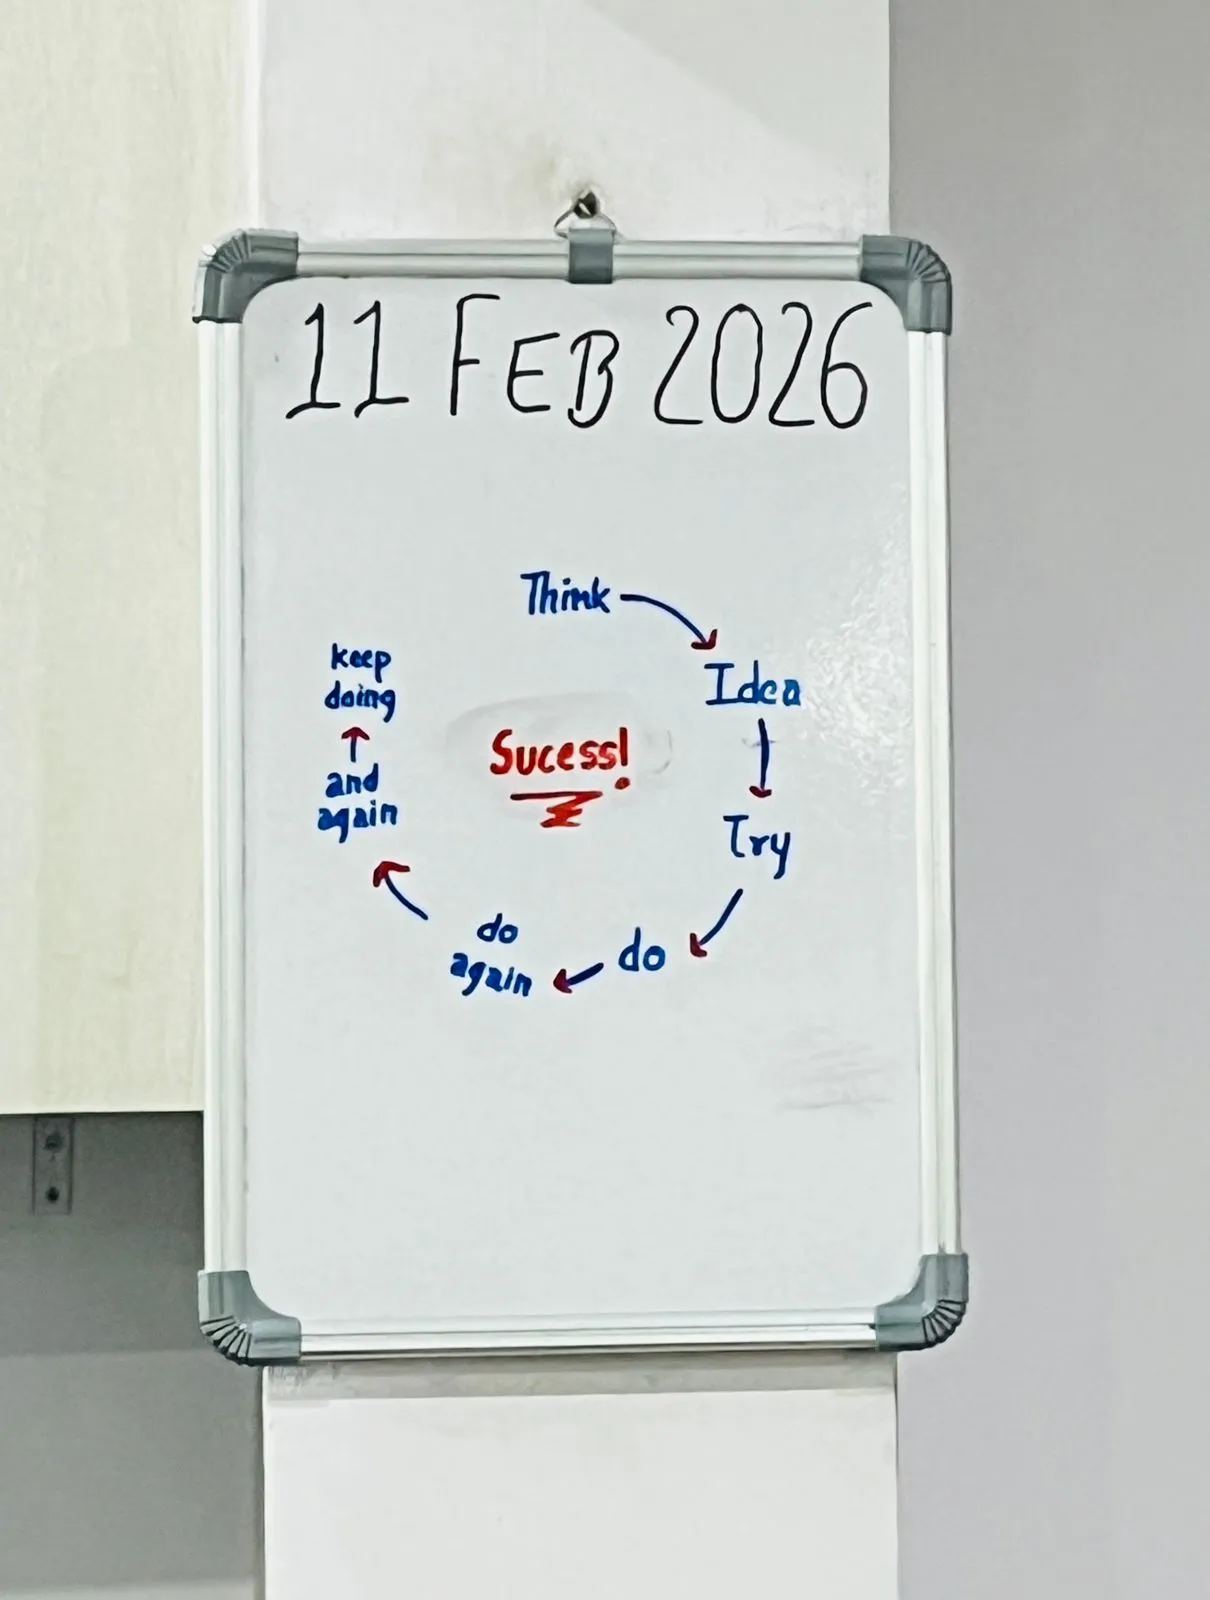 11 FEB 2026
Think
Idea
Try
do
do
again
and
again
keep
doing
Sucess!